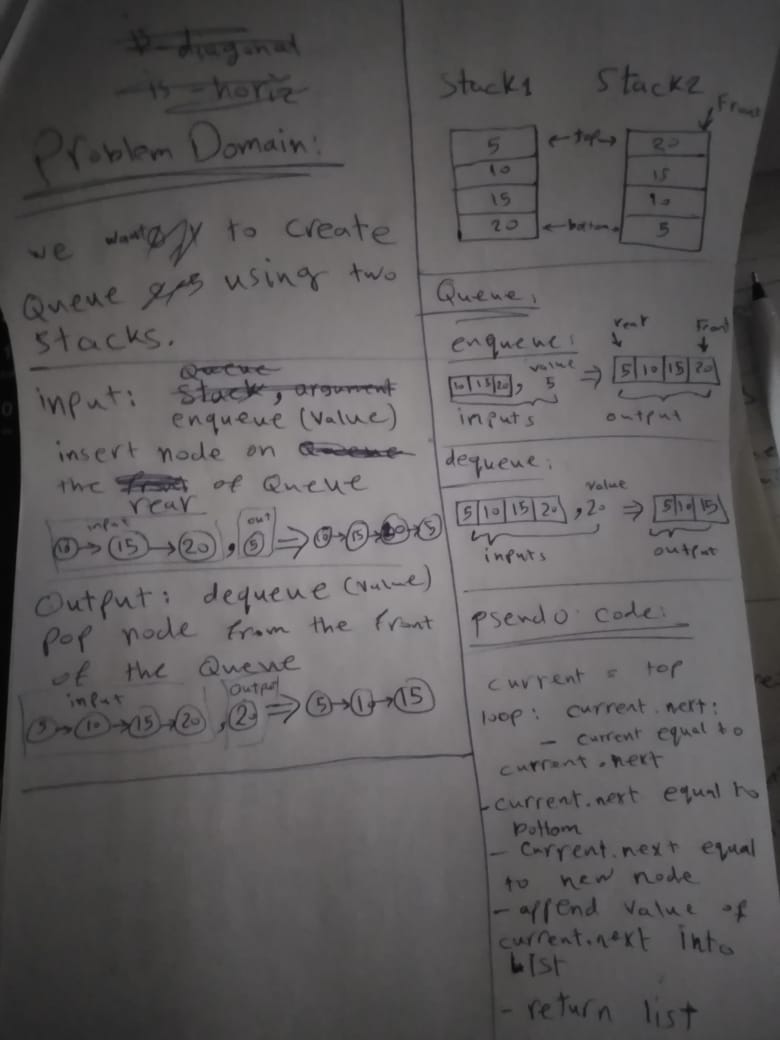 diagonal
is - horiz
Problem Domain:
we want to create
Queue using two
Stacks.
Queue
input: Stack, argument
enqueue (value)
insert node on Queue
the front of Queue
rear
input
out
10 → 15 → 20 , 5 ⇒ 10 → 15 → 20 → 5
Output: dequeue (value)
pop node from the front
of the Queue
input
Output
5 → 10 → 15 → 20 , 20 ⇒ 5 → 10 → 15
Stack1 Stack2
Front
5 ← top → 20
10 15
15 10
20 ← bottom 5
Queue:
enqueue:
rear Front
value
10 | 15 | 20 , 5 ⇒ 5 | 10 | 15 | 20
inputs output
dequeue:
value
5 | 10 | 15 | 20 , 20 ⇒ 5 | 10 | 15
inputs output
psendo code:
current = top
loop: current.next:
- current equal to
current.next
- current.next equal to
bottom
- current.next equal
to new node
- append value of
current.next into
List
- return list